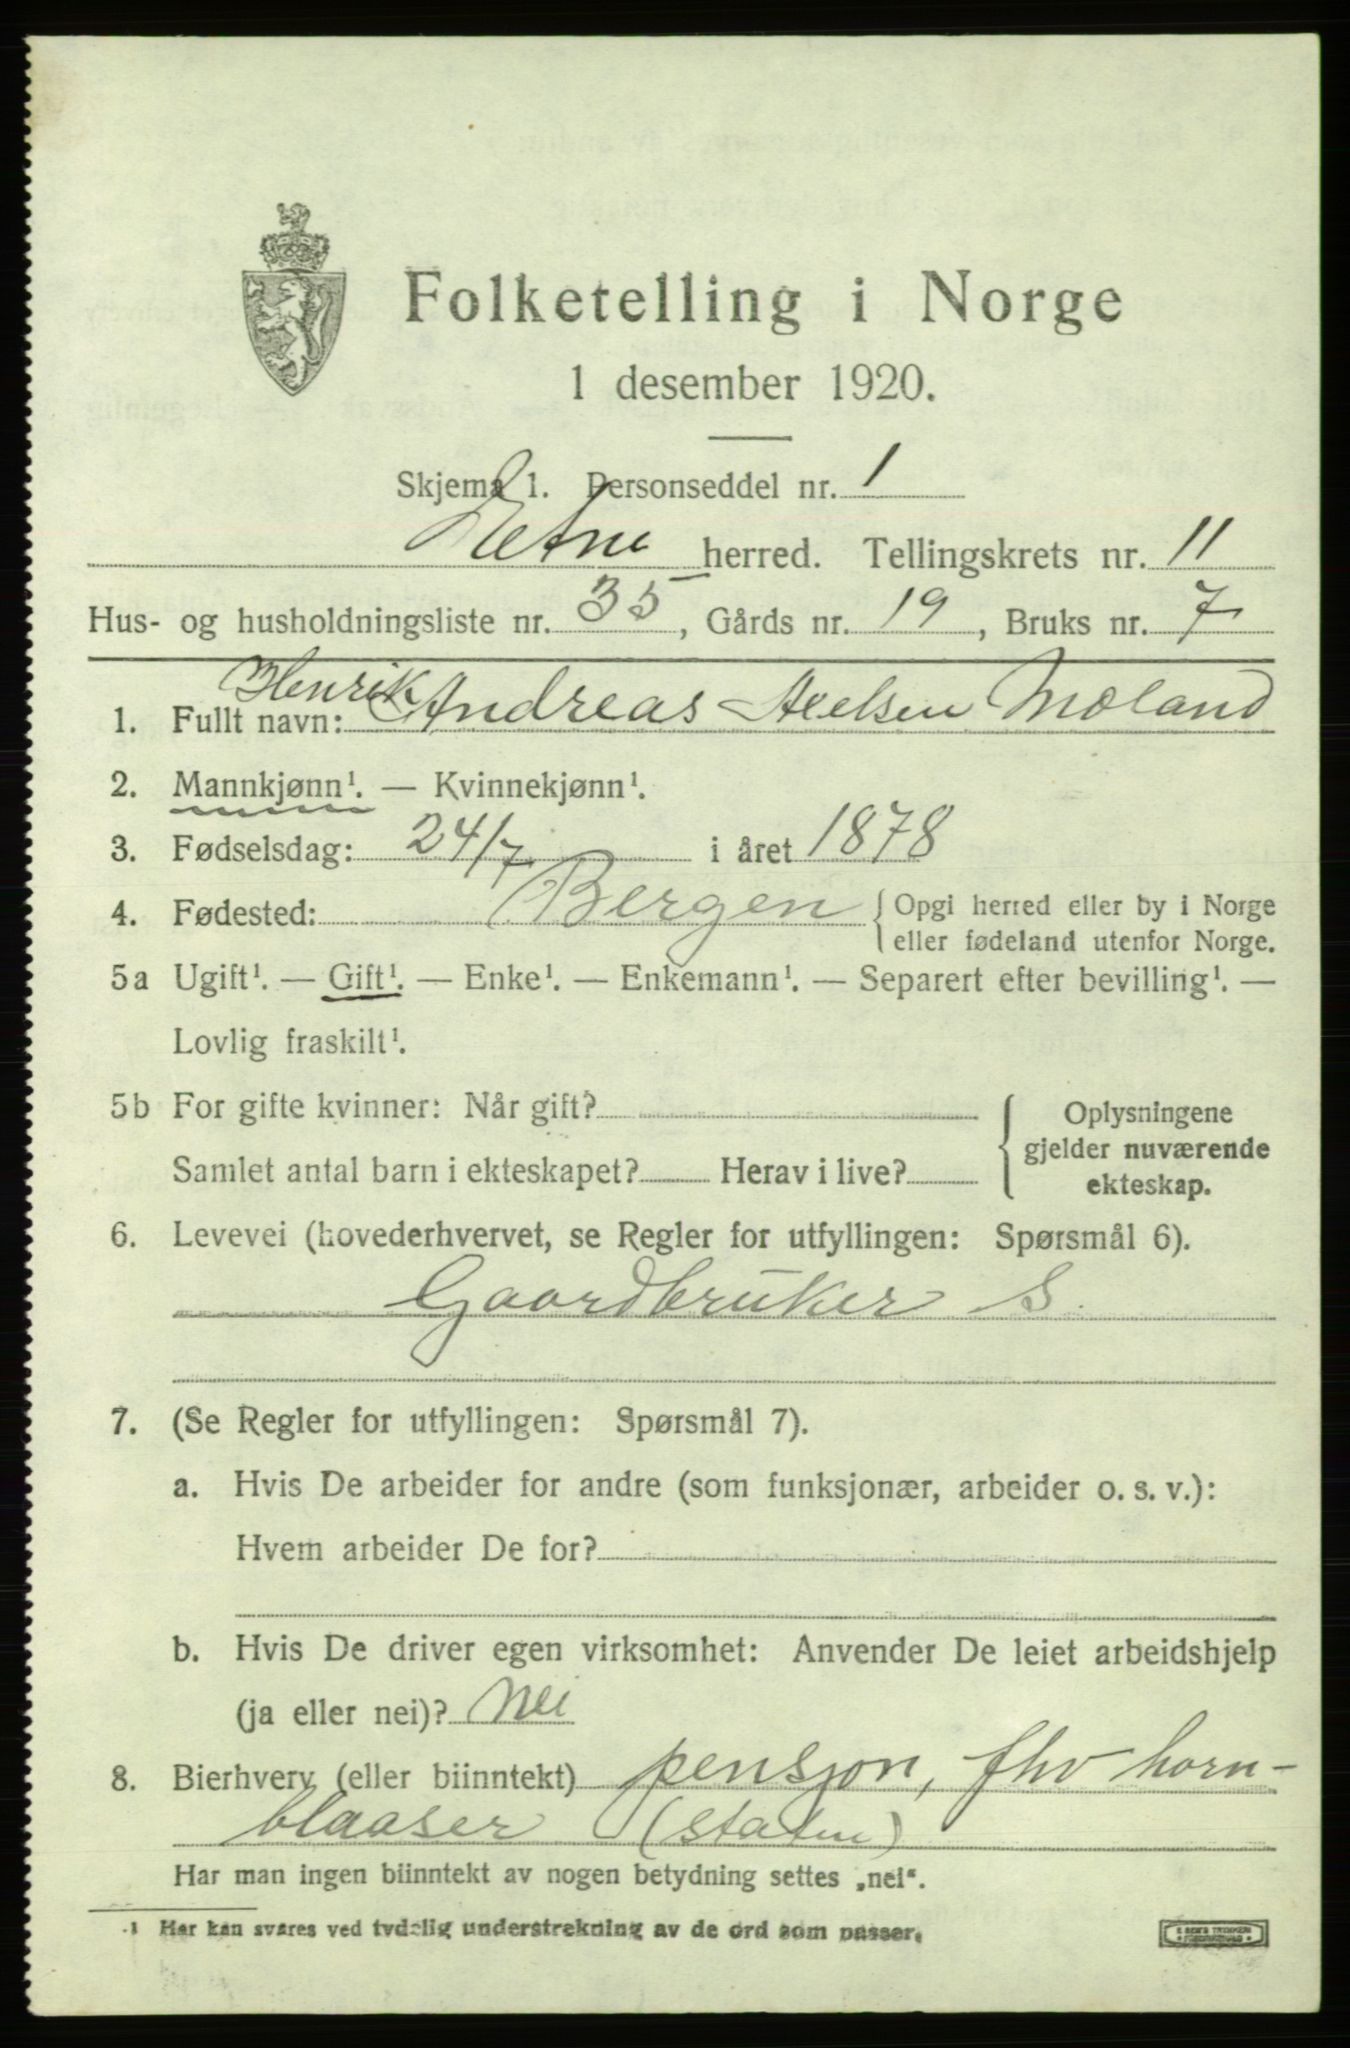 Folketelling i Norge
1 desember 1920.
Skjema 1. Personseddel nr. 1
Etne herred. Tellingskrets nr. 11
Hus- og husholdningsliste nr. 35, Gårds nr. 19, Bruks nr. 7
Henrik
1. Fullt navn: Andreas Axelsen Moland
2. Mannkjønn¹. — Kvinnekjønn¹.
3. Fødselsdag: 24/7 i året 1878
4. Fødested: Bergen { Opgi herred eller by i Norge
eller fødeland utenfor Norge.
5a Ugift¹. — Gift¹. — Enke¹. — Enkemann¹. — Separert efter bevilling¹. —
Lovlig fraskilt¹.
5b For gifte kvinner: Når gift? { Oplysningene
gjelder nuværende
Samlet antal barn i ekteskapet? Herav i live? ekteskap.
6. Levevei (hovederhvervet, se Regler for utfyllingen: Spørsmål 6).
Gaardbruker S.
7. (Se Regler for utfyllingen: Spørsmål 7).
a. Hvis De arbeider for andre (som funksjonær, arbeider o. s. v.):
Hvem arbeider De for?
b. Hvis De driver egen virksomhet: Anvender De leiet arbeidshjelp
(ja eller nei)? Nei
8. Bierhverv (eller biinntekt) pensjon, fhv horn-
blaaser (staten)
Har man ingen biinntekt av nogen betydning settes „nei“.
¹ Her kan svares ved tydelig understrekning av de ord som passer.